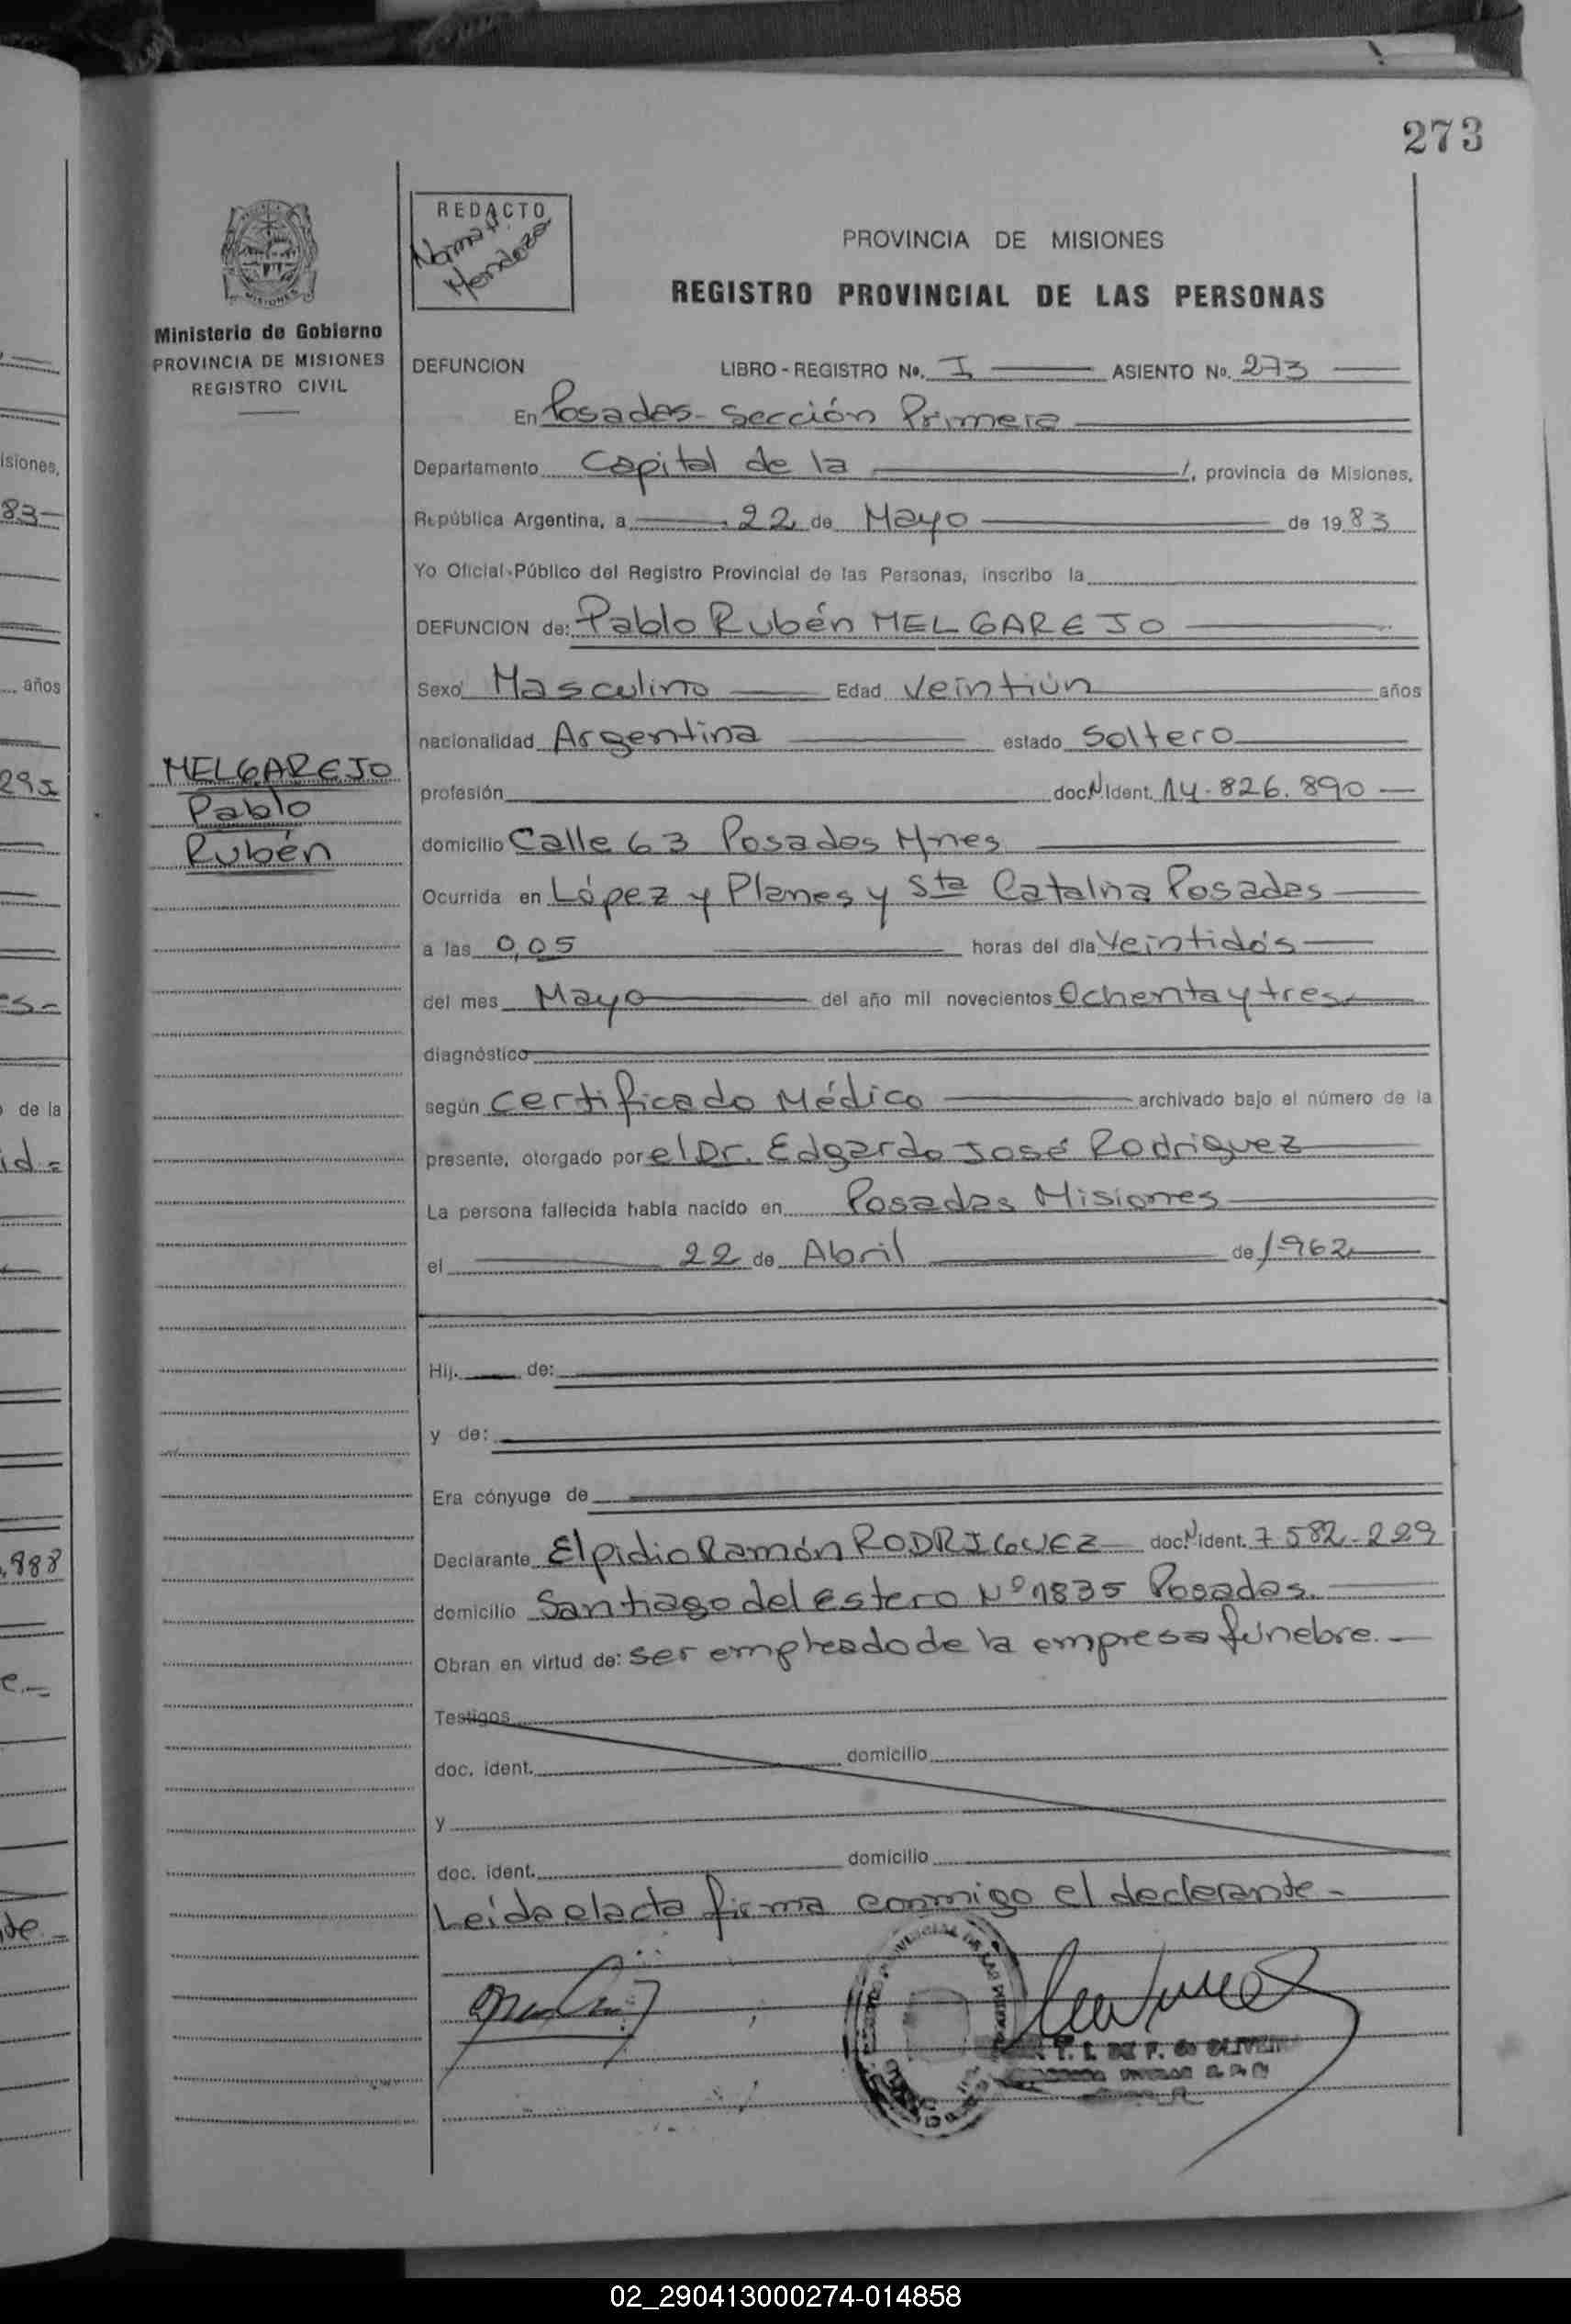 273
REDACTO
Norma H.
Mendoza
PROVINCIA DE MISIONES
REGISTRO PROVINCIAL DE LAS PERSONAS
MISIONES
Ministerio de Gobierno
PROVINCIA DE MISIONES
REGISTRO CIVIL
DEFUNCION LIBRO - REGISTRO No. I ASIENTO No. 273
En Posadas - Sección Primera
Departamento Capital de la /, provincia de Misiones,
República Argentina, a 22 de Mayo de 1983
Yo Oficial Público del Registro Provincial de las Personas, inscribo la
DEFUNCION de: Pablo Rubén MELGAREJO
Sexo Masculino Edad Veintiún años
nacionalidad Argentina estado Soltero
MELGAREJO
Pablo
Rubén
profesión doc. N. Ident. 14.826.890
domicilio Calle 63 Posadas Mnes
Ocurrida en López y Planes y Sta Catalina Posadas
a las 0,05 horas del día Veintidós
del mes Mayo del año mil novecientos Ochenta y tres
diagnóstico
según Certificado Médico archivado bajo el número de la
presente, otorgado por el Dr. Edgardo José Rodriguez
La persona fallecida había nacido en Posadas Misiones
el 22 de Abril de 1962
Hij. de:
y de:
Era cónyuge de
Declarante Elpidio Ramón RODRIGUEZ doc. N ident. 7.582.229
domicilio Santiago del Estero Nº 1835 Posadas.
Obran en virtud de: ser empleado de la empresa fúnebre.-
Testigos
doc. ident. domicilio
y
doc. ident. domicilio
Leída el acta firma conmigo el declarante-
isiones,
83-
años
295
es-
de la
id=
.888
e.-
te.-
02_290413000274-014858